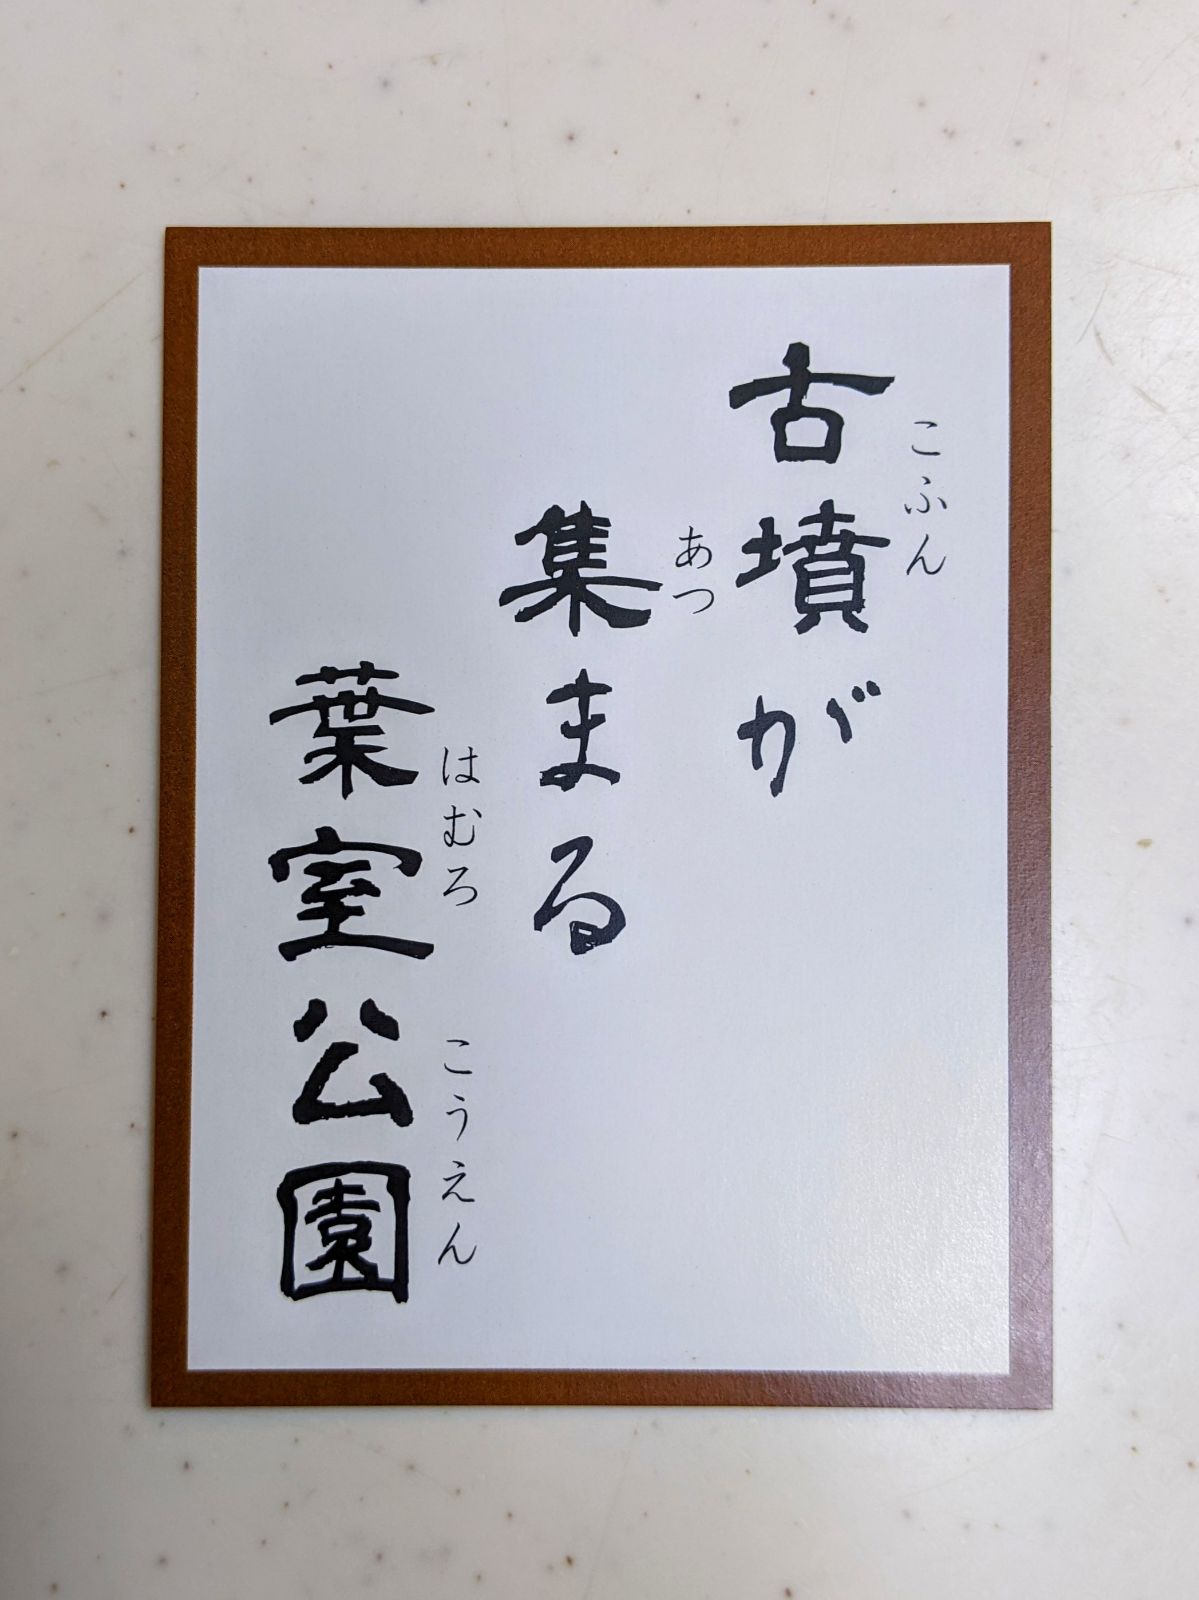 古墳が
こふん
集まる
あつ
葉室公園
はむろ こうえん